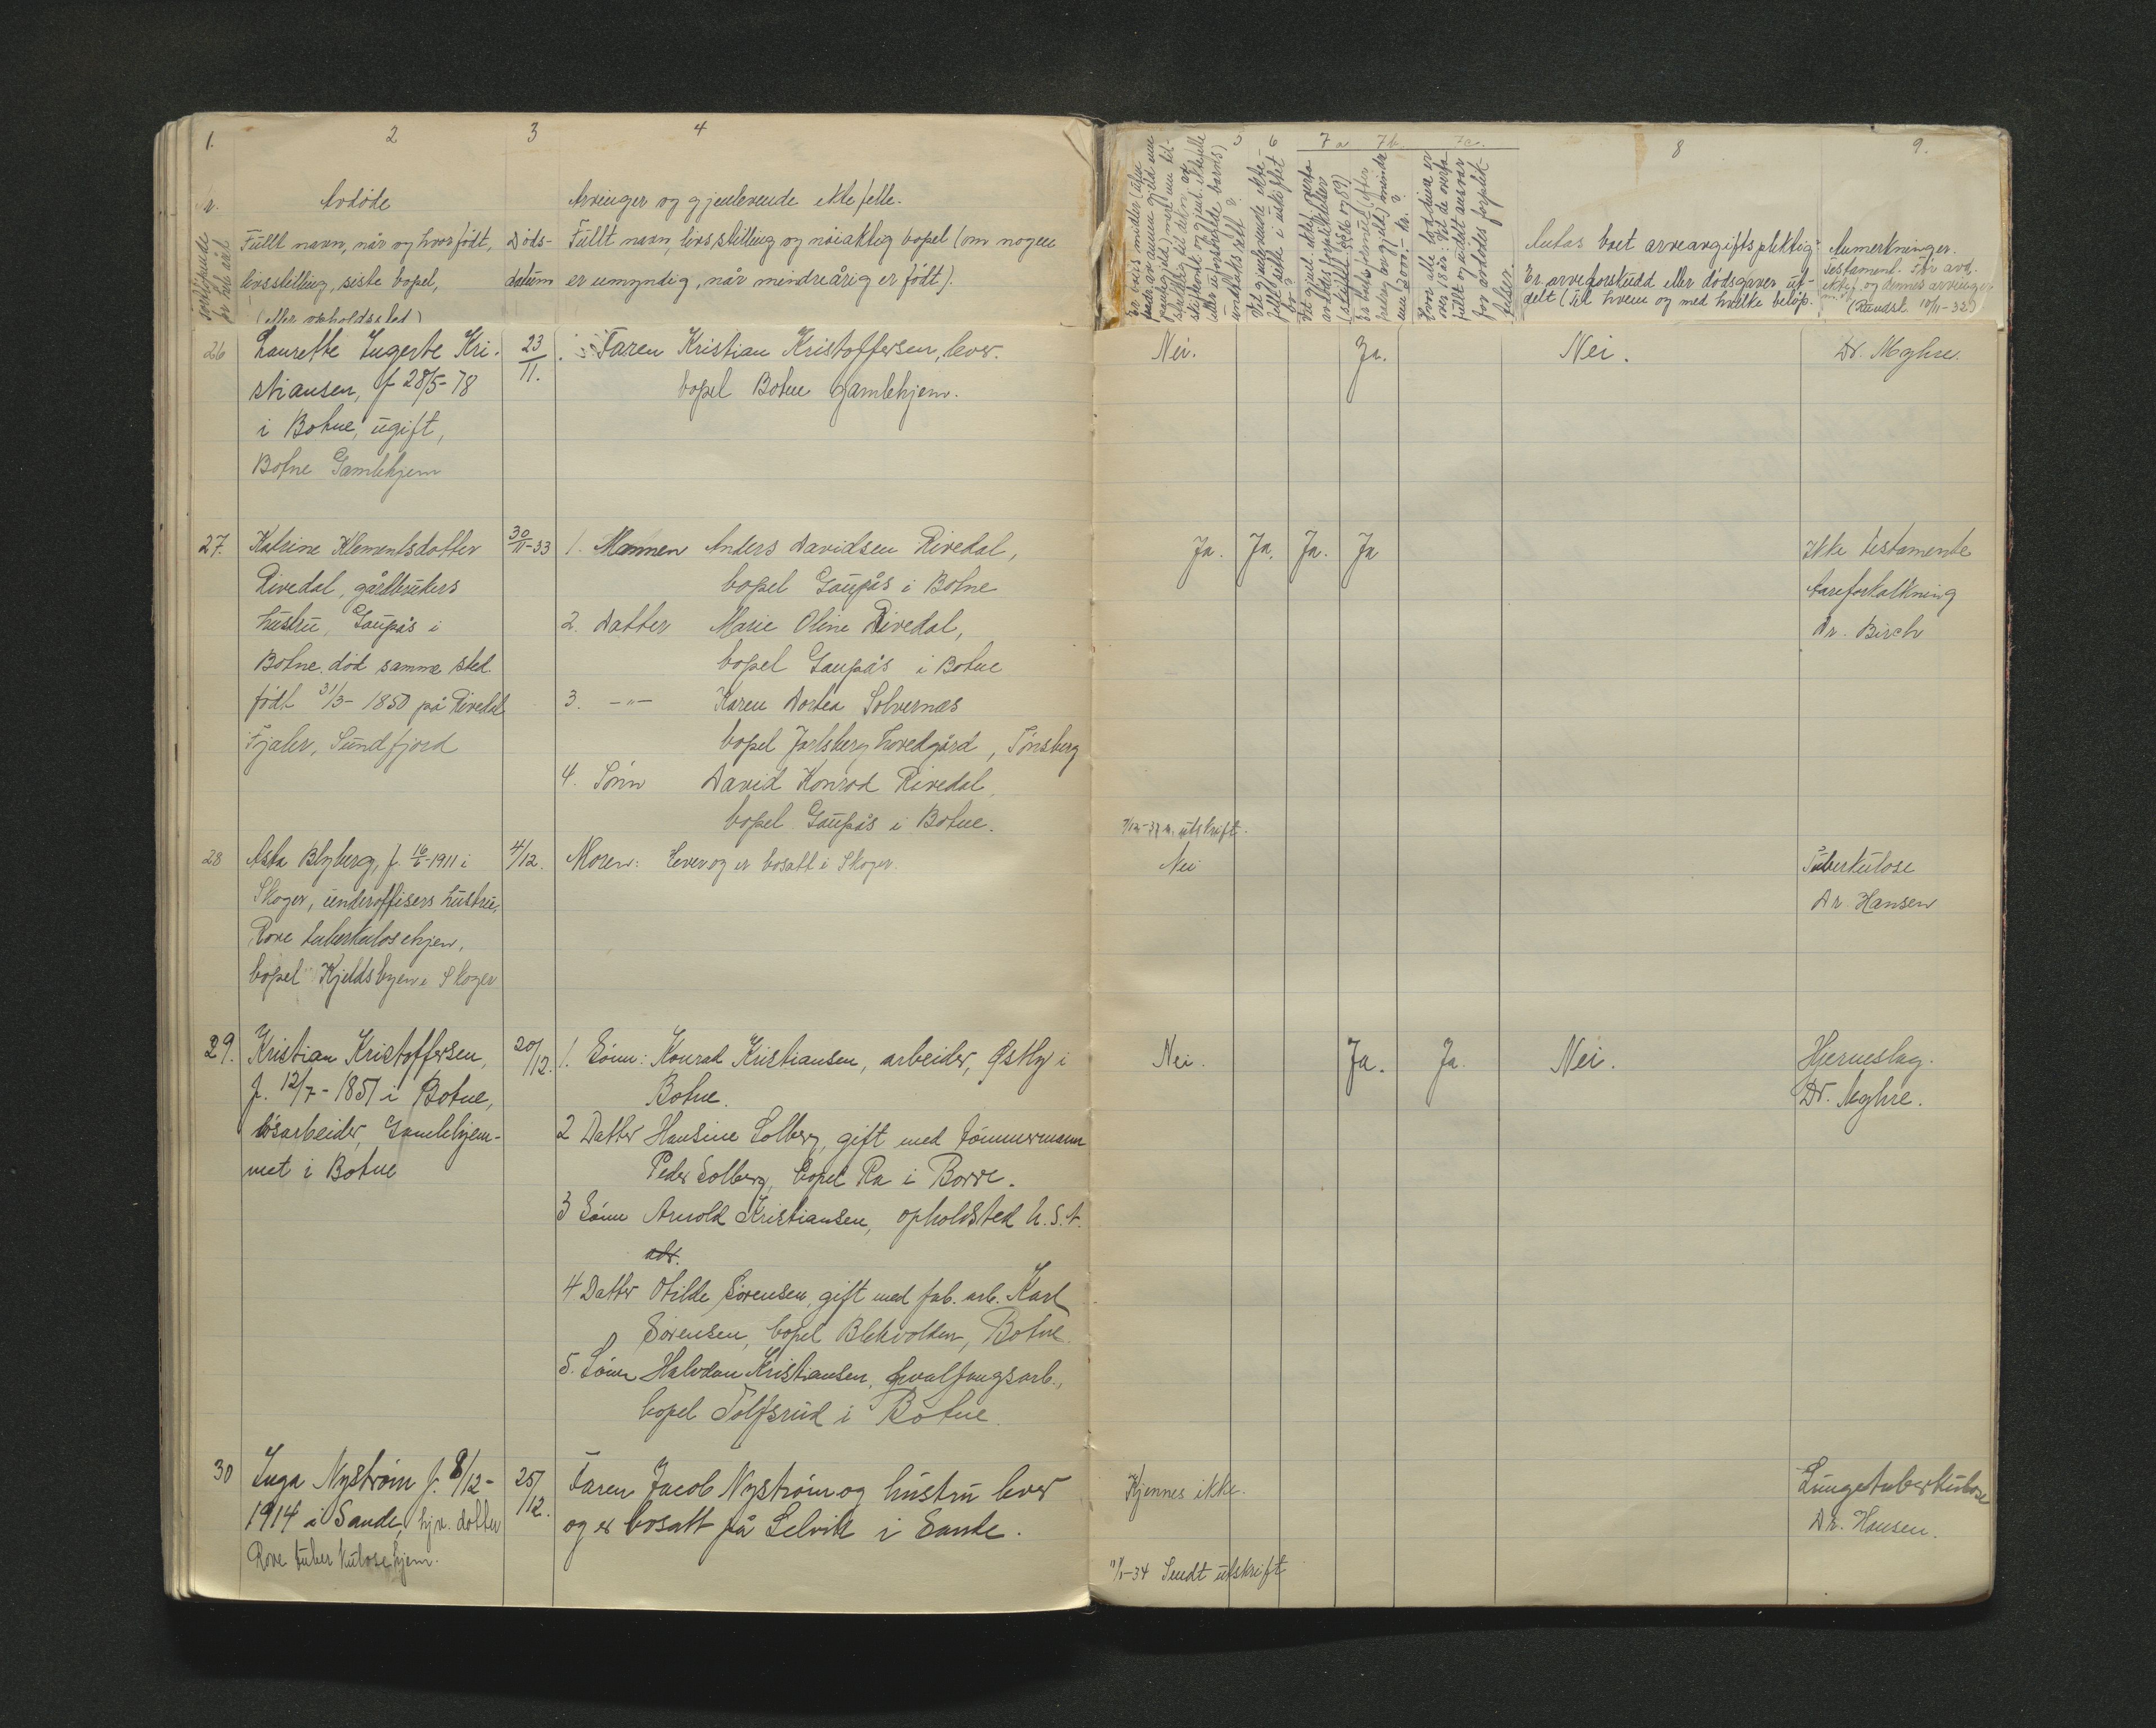 1. 2 3 4
Nr. Avdøde Arvinger og gjenlevende ektefelle.
Fortløpende for hvert år
Fullt navn, når og hvor født, Døds- Fullt navn, livsstilling og nøiaktig bopel (om nogen
livsstilling, siste bopel, datum er umyndig, når mindreårig er født).
(eller opholdssted)
26 Laurette Ingerte Kri- 23/11. Faren Kristian Kristoffersen, lever.
stiansen, f 28/5-78 bopel Botne gamlehjem.
i Botne, ugift,
Botne Gamlehjem
27. Katrine Klementsdotter 30/11-33 1. Mannen Anders Davidsen Rivedal,
Rivedal, gårdbrukers bopel Gaupås i Botne
hustru, Gaupås i 2. Datter Marie Oline Rivedal,
Botne. død samme sted. bopel Gaupås i Botne
født 31/3-1850 på Rivedal 3. -"- Karen Dortea Solvernes
Fjaler, Sundfjord bopel Jarlsberg hovedgård, Tønsberg
4. Sønn David Konrad Rivedal,
bopel Gaupås i Botne.
28 Asta Blyberg, f. 16/5-1911 i 4/12. Moren: lever og er bosatt i Skoger.
Skoger, underoffisers hustru,
Rove tuberkulosehjem,
bopel Kjeldsbyen i Skoger
29. Kristian Kristoffersen, 20/12. 1. Sønn: Konrad Kristiansen, arbeider, Østby i
f. 12/7-1851 i Botne, Botne.
løsarbeider, Gamlehjem- 2 Datter Hansine Solberg, gift med tømmermann
met i Botne Peder Solberg, bopel Ra i Borre.
3 Sønn Arnold Kristiansen, opholdsted U.S.A.
adr.
4 Datter Otilde Sørensen, gift med fab. arb. Karl
Sørensen, bopel Blekvolden, Botne.
5. Sønn Halvdan Kristiansen, hvalfangsarb.,
bopel Tolfsrud i Botne.
30 Inga Nystrøm f. 8/12- 25/12. Faren Jacob Nystrøm og hustru lever
1914 i Sande, hjv. dotter og er bosatt på Selvik i Sande.
Rove tuberkulosehjem.
5 6 7a 7b. 7c. 8 9.
Antas boet arveavgiftspliktig? Anmerkninger.
Er arveforskudd eller dødsgaver ut- Testament. for avd.
delt (til hvem og med hvilke beløp. ektef. og dennes arvinger
(Rundskr. 10/11-32)
Nei. Ja. Nei. Dr. Myhre.
Ja. Ja. Ja. Ja Ikke testamente
Aareforkalkning
Dr. Birch
utskrift.
Nei Tuberkulose
Dr. Hansen
Nei. Ja. Ja. Nei. Hjerneslag.
Dr. Myhre.
Kjennes ikke. Lungetuberkulose
Dr. Hansen.
11/1-34 Sendt utskrift